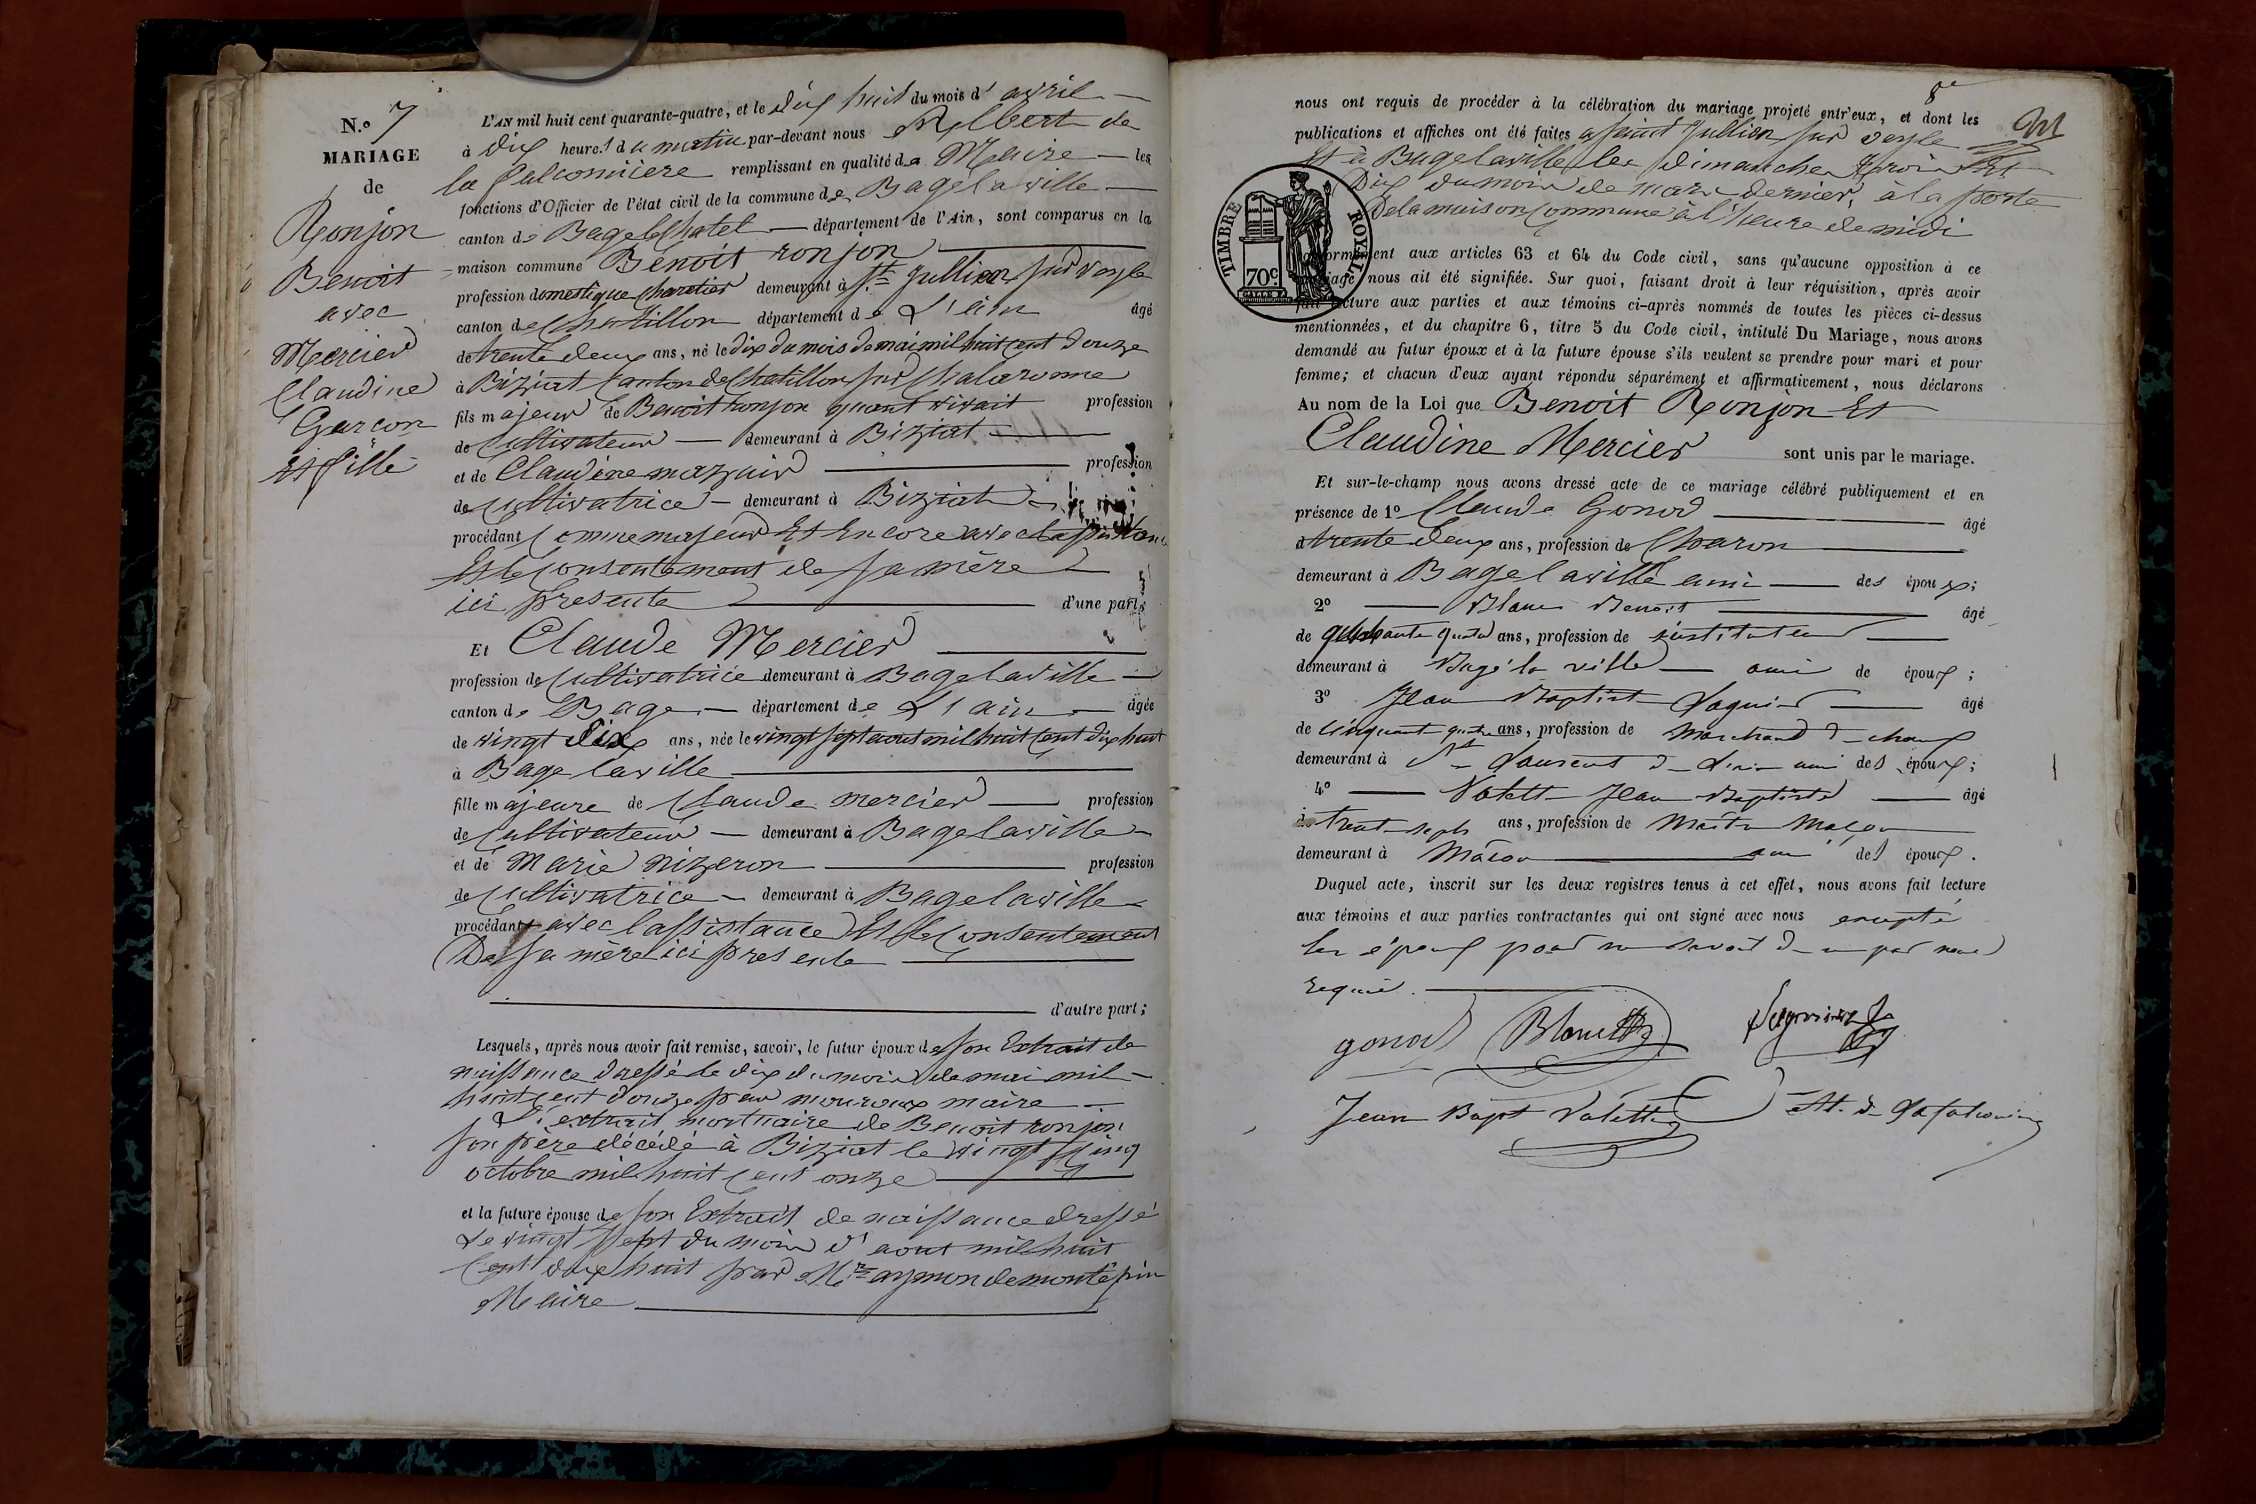 N.o 7
MARIAGE
de
Ronjon
Benoit
avec
Mercier
Claudine
Garcon
et fille
L'AN mil huit cent quarante-quatre, et le dix huit du mois d'avril
à dix heures du matin par-devant nous Albert de
la falconnière remplissant en qualité de Maire les
fonctions d'Officier de l'état civil de la commune de Bagelaville
canton de Bagelechatel département de l'Ain, sont comparus en la
maison commune Benoit ronjon
profession domestique demeurant à St Jullien sur veyle
canton de Chatillon département de L'ain âgé
de trente deux ans, né le dix du mois de mai mil huit cent douze
à Biziat canton de Chatillon sur Chalaronne
fils majeur de Benoit ronjon quant vivait profession
de Cultivateur demeurant à Biziat
et de Claudine mazuir profession
de Cultivatrice demeurant à Biziat
procédant comme majeur Et Encore avec lassistance
Et le consentement de sa mère
ici presente d'une part;
Et Claude Mercier
profession de Cultivatrice demeurant à Bagelaville
canton de Bage département de L'ain âgée
de vingt Six ans, née le vingt sept aout mil huit cent dix huit
à Bagelaville
fille majeure de Claude mercier profession
de Cultivateur demeurant à Bagelaville
et de Marie nizeron profession
de Cultivatrice demeurant à Bagelaville
procédant avec lassistance Et le Consentement
De sa mère ici presente
d'autre part;
Lesquels, après nous avoir fait remise, savoir, le futur époux de son Extrait de
naissance dressé le dix du mois de mai mil
huit cent douze par mouroux maire
L'extrait mortuaire de Benoit ronjon
son père décédé à Biziat le vingt cinq
octobre mil huit cent onze
et la future épouse de son Extrait de naissance dressé
Le vingt sept du mois d'aout mil huit
Cent dix huit par Mr aymon de montépin
Maire
8e
nous ont requis de procéder à la célébration du mariage projeté entr'eux, et dont les
publications et affiches ont été faites a saint Jullien sur veyle
Et à Bagelaville les dimanches trois Et
Dix du mois de mars dernier, à la porte
De la maison Commune à l'heure de midi
TIMBRE ROYAL
70c
conformément aux articles 63 et 64 du Code civil, sans qu'aucune opposition à ce
mariage nous ait été signifiée. Sur quoi, faisant droit à leur réquisition, après avoir
fait lecture aux parties et aux témoins ci-après nommés de toutes les pièces ci-dessus
mentionnées, et du chapitre 6, titre 5 du Code civil, intitulé Du Mariage, nous avons
demandé au futur époux et à la future épouse s'ils veulent se prendre pour mari et pour
femme; et chacun d'eux ayant répondu séparément et affirmativement, nous déclarons
Au nom de la Loi que Benoit Ronjon Et
Claudine Mercier sont unis par le mariage.
Et sur-le-champ nous avons dressé acte de ce mariage célébré publiquement et en
présence de 1o Claude Gonod âgé
de trente deux ans, profession de Charon
demeurant à Bagelaville ami des époux;
2o Blanc Benoit âgé
de quarante quatre ans, profession de instituteur
demeurant à Bagé la ville ami de époux;
3o Jean Baptist âgé
de cinquante quatre ans, profession de Marchand de chaux
demeurant à St Laurent de L'ain ami des époux;
4o Valett Jean Baptiste âgé
de trente-sept ans, profession de Maître Maçon
demeurant à Mâcon ami des époux.
Duquel acte, inscrit sur les deux registres tenus à cet effet, nous avons fait lecture
aux témoins et aux parties contractantes qui ont signé avec nous excepté
les époux pour ne savoir de ce par nous
requis.
gonod
Jean Bapt Valette